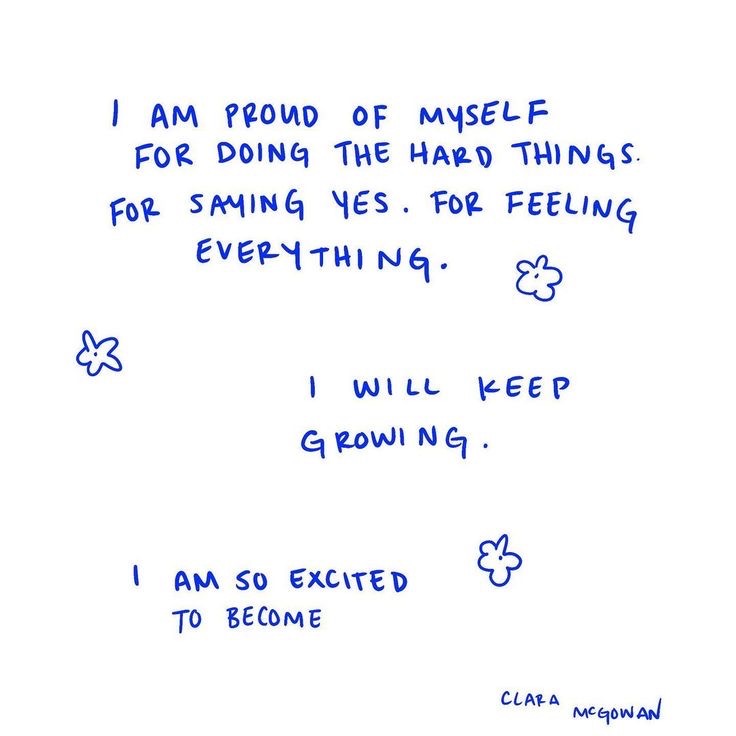 I AM PROUD OF MYSELF
FOR DOING THE HARD THINGS.
FOR SAYING YES. FOR FEELING
EVERYTHING.
I WILL KEEP
GROWING.
I AM SO EXCITED
TO BECOME
CLARA
McGOWAN